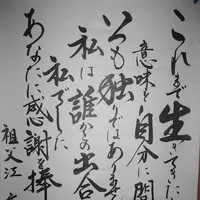 これまで生きてきた
意味を自分に問
いつも独りではありま
私は誰かの出合
私でした
あなたに感謝を捧
祖父江